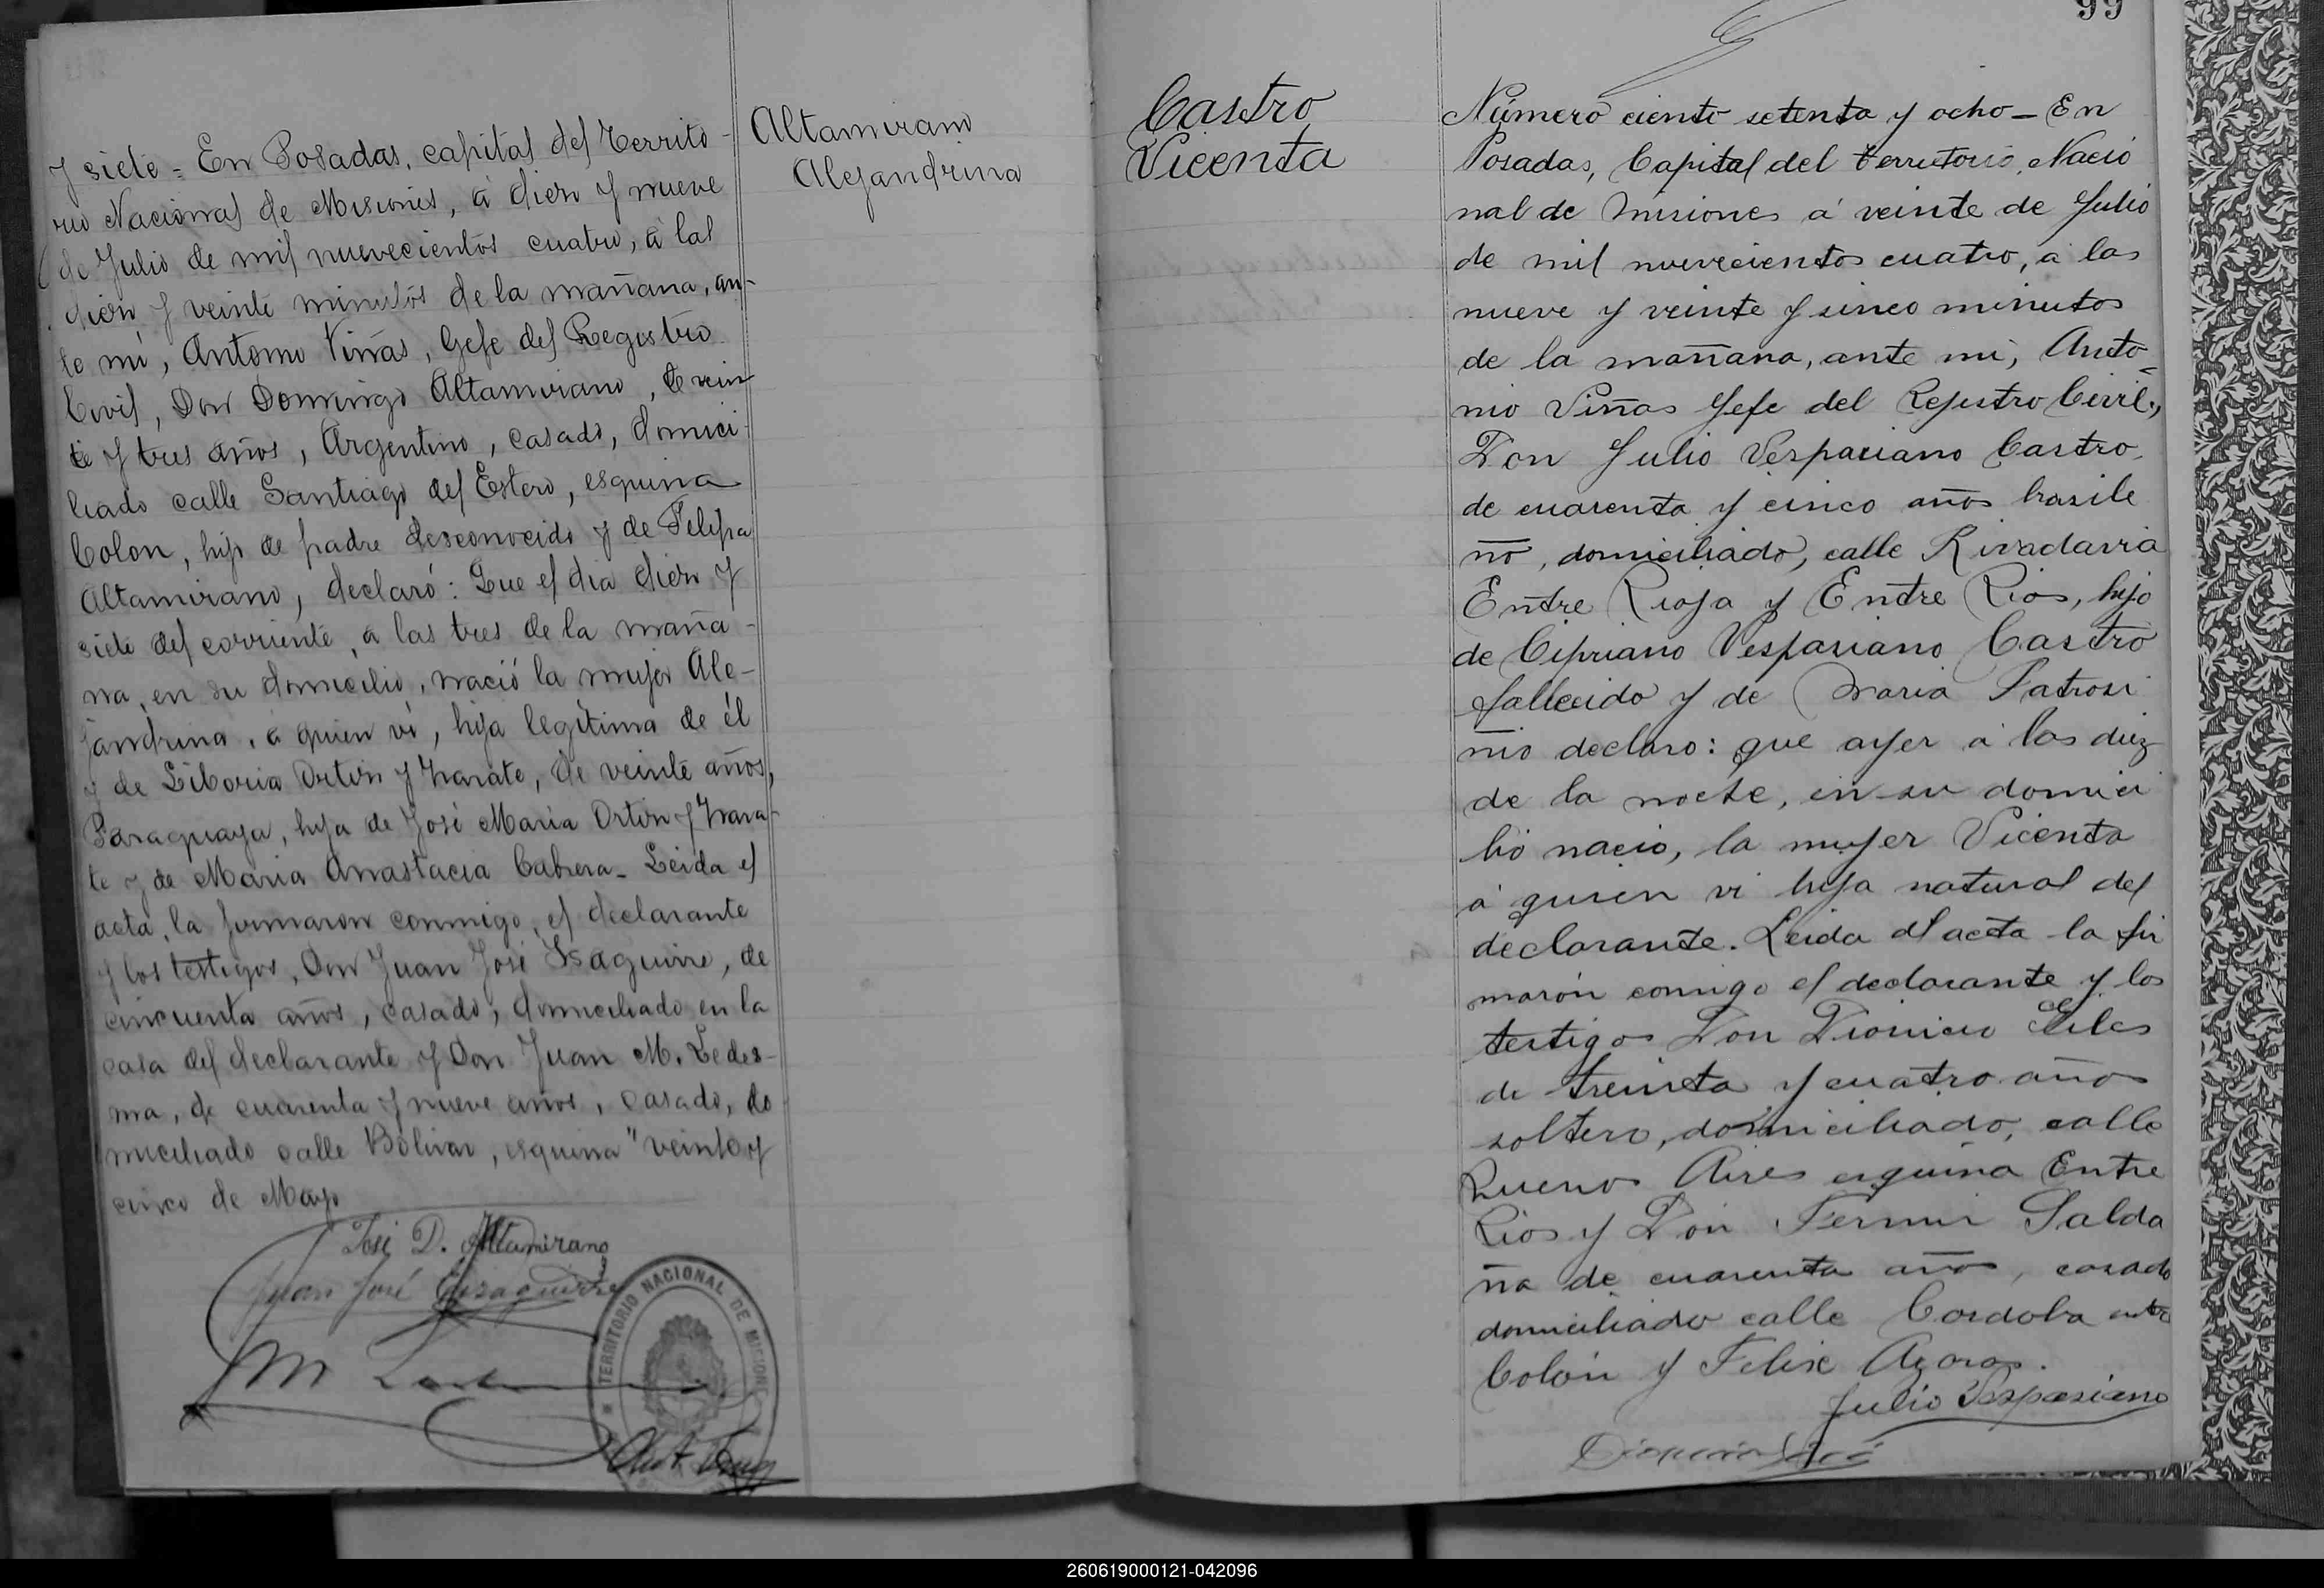 Altamirano
Alejandrina
y siete = En Posadas, capital del Territo-
rio Nacional de Misiones, á diez y nueve
de Julio de mil nuevecientos cuatro, á las
diez y veinte minutos de la mañana, an-
te mi, Antonio Viñas, Gefe del Registro
Civil, Don Domingo Altamirano, de vein
te y tres años, Argentino, casado, domici-
liado calle Santiago del Estero, esquina
Colon, hijo de padre desconocido y de Felipa
Altamirano, declaró: Que el dia diez y
siete del corriente, a las tres de la maña-
na, en su domicilio, nació la mujer Ale-
jandrina, á quien vi, hija legítima de él
y de Liboria Ortiz y Zarate, de veinte años,
Paraguaya, hija de José Maria Ortiz y Zara-
te y de Maria Anastacia Cabrera - Leida el
acta, la firmaron conmigo, el declarante
y los testigos, Don Juan José Isaguirre, de
cincuenta años, casado, domiciliado en la
casa del declarante y Don Juan M. Ledes-
ma, de cuarenta y nueve años, casado, do
miciliado calle Bolivar, esquina "veinte y
cinco de Mayo
José D. Altamirano
Juan José Eisaguirre
TERRITORIO NACIONAL DE MISIONES
Ant. Viñas
99
Castro
Vicenta
Número ciento setenta y ocho - En
Posadas, Capital del territorio, Nacio
nal de Misiones á veinte de Julio
de mil nuevecientos cuatro, á las
nueve y veinte y sinco minutos
de la mañana, ante mi, Anto-
nio Viñas Jefe del Rejistro Civil,
Don Julio Vespaciano Castro,
de cuarenta y cinco años brasile
ño, domiciliado, calle Rivadavia
Entre Rioja y Entre Rios, hijo
de Cipriano Vespasiano Castro
fallecido y de Maria Patrosi
nio declaro: que ayer a las diez
de la noche, en su domici
lio nacio, la mujer Vicenta
á quien vi hija natural del
declarante. Leida el acta la fir
marón conmigo el declarante y los
testigos Don Dionicio
de treinta y cuatro años
soltero, domiciliado, calle
Buenos Aires esquina Entre
Rios y Don Fermin Salda
ña de cuarenta años, casado
domiciliado calle Cordoba entre
Colón y Felix Azara.
Julio Vespasiano
260619000121-042096